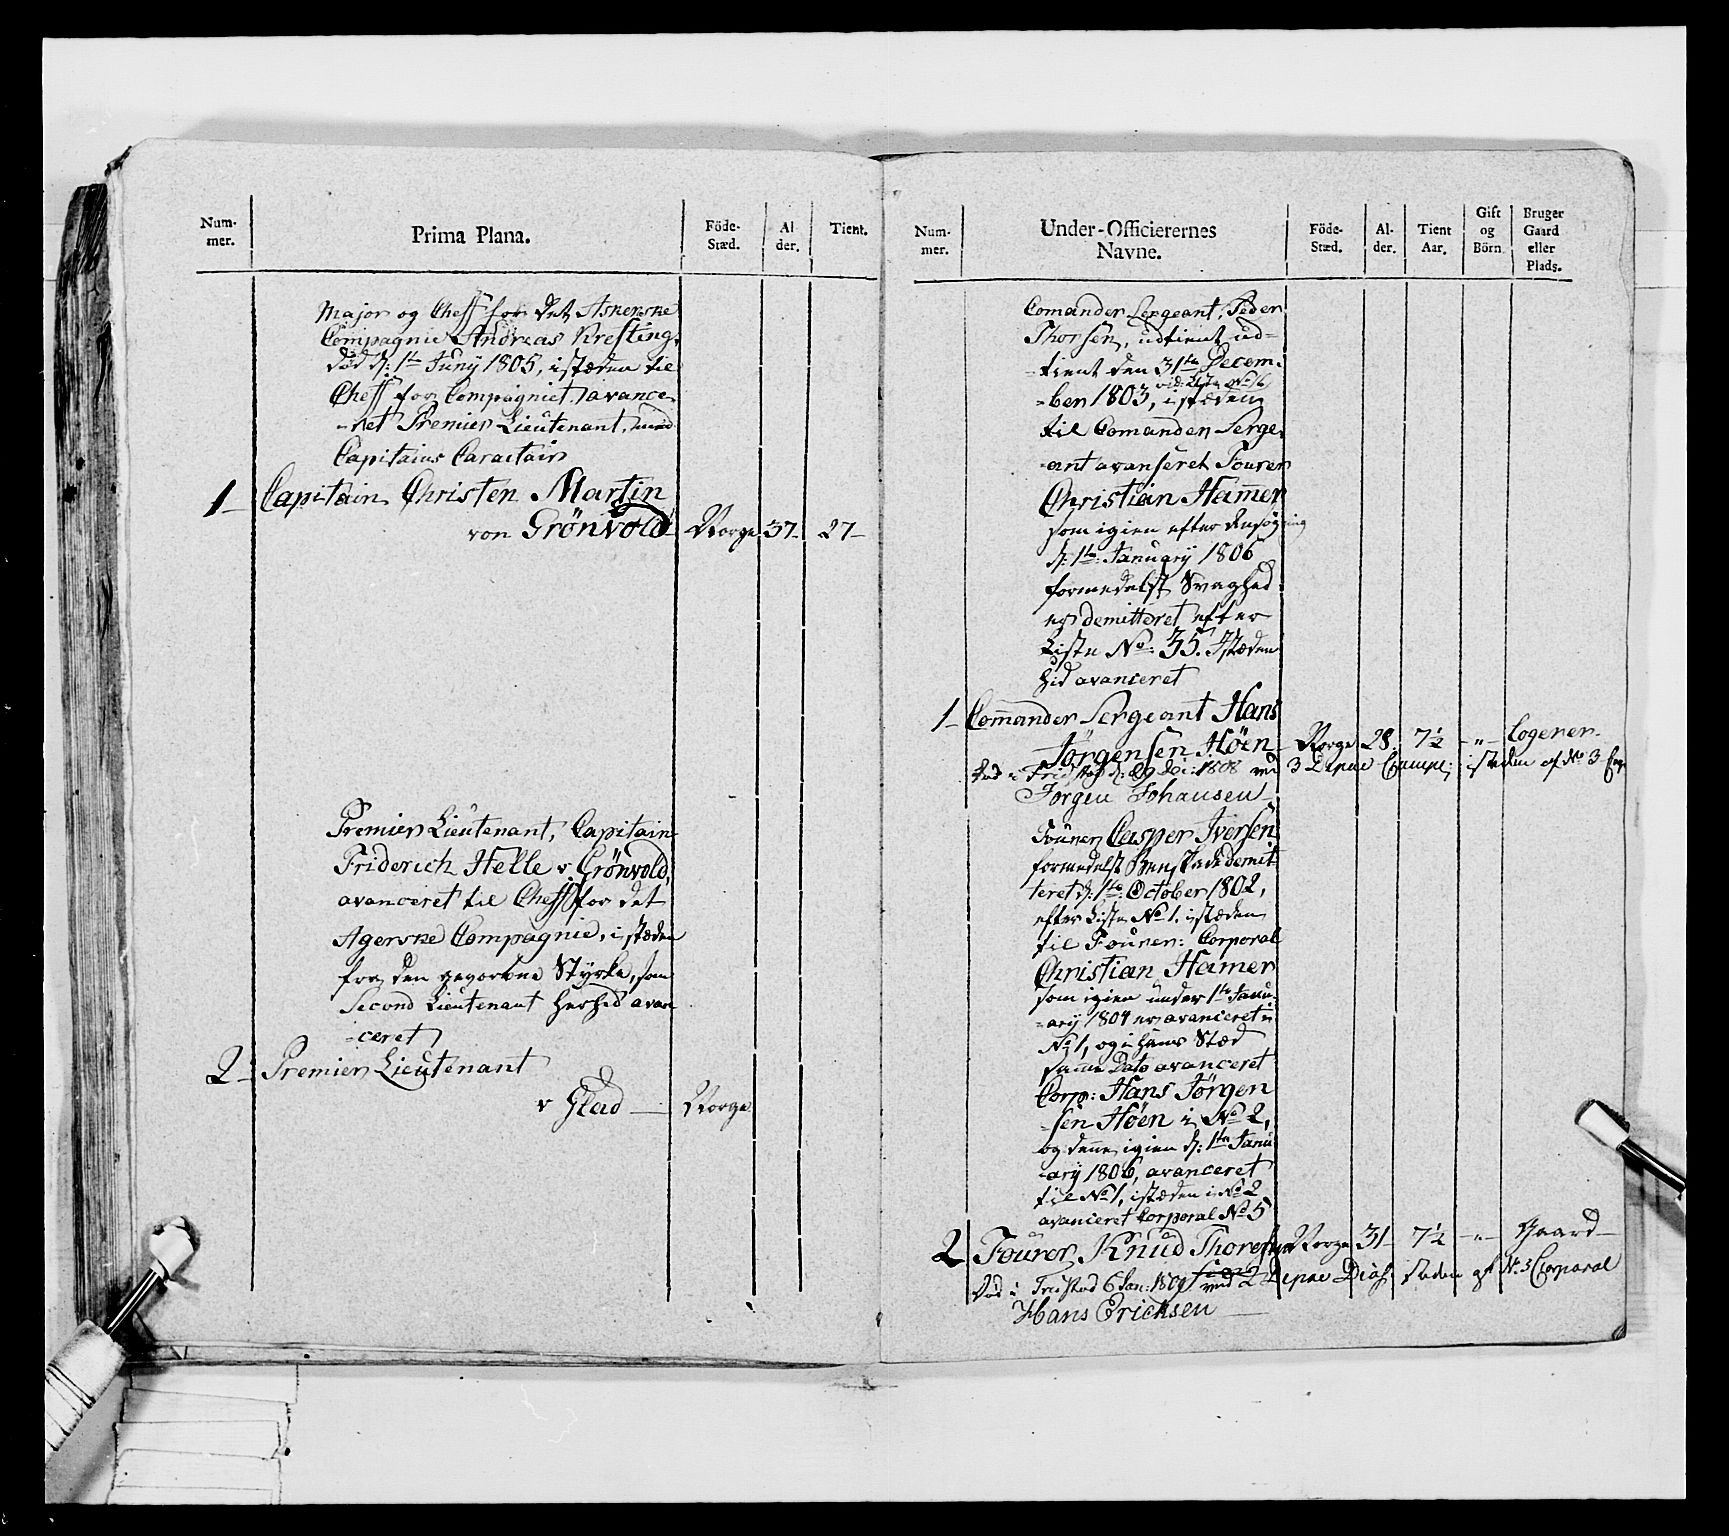 Num-
mer.
Prima Plana.
Föde-
Stæd.
Al
der.
Tient.
Major og Cheff for det Askerske
Compagnie Andreas Krefting,
død d: 1te Juny 1805, istæden til
Cheff for Compagniet avance
-ret Premier Lieutenant, med
Capitains Caractair
1 Capitain Christen Martin
von Grönvold Norge 37 27
Premier Lieutenant, Capitain
Friderich Helle v. Grönvold,
avanceret til Cheff for det
Agerske Compagnie, i stæden
for den Styrke, som
Second Lieutenant herhid avan
-ceret
2 Premier Lieutenant
v Glad Norge
Num-
mer.
Under-Officierernes
Navne.
Föde-
Stæd.
Al-
der.
Tient
Aar.
Gift
og
Börn
Bruger
Gaard
eller
Plads.
Comander Sergeant, Peder
Thorsen, udtient ud-
-tient den 31te Decem-
vid: Liste No 16
-ber 1803, i stæden
til Comander Serge-
-ant avanseret Fourer
Christian Hamer
som igien efter Ansøgning
d: 1te January 1806
formedelst Svaghed
er demitteret efter
Liste No: 35. Istæden
hid avanceret
1 Comander Sergeant Hans
Jörgensen Höen Norge 28 7½ -"- Logener
Død i Fridstad d: 29 Dec: 1808 ved 3 Depne Compe; isteden af No 3 Corp
Jörgen Johansen
Fourer Casper Iversen
formedelst demit
teret d: 1te October 1802,
efter Liste No 1. istæden
til Fourer: Corporal
Christian Hamer
som igien under 1te Janu-
-ary 1804 er avanceret i
No 1, og i hans Stæd
samme Dato avanceret
Corp: Hans Jörgen
-sen Höen i No 2,
og denne igien d: 1te Janu
-ary 1806, avanceret
til No 1, istæden i No 2
avanceret Corporal No 5
2 Fourer Knud Thoresen Norge 31 7½ -"- Gaard
Død i Fridstad 6 Jan: 1809 ved 2 Depne steden af No 3 Corporal
Hans Ericksen